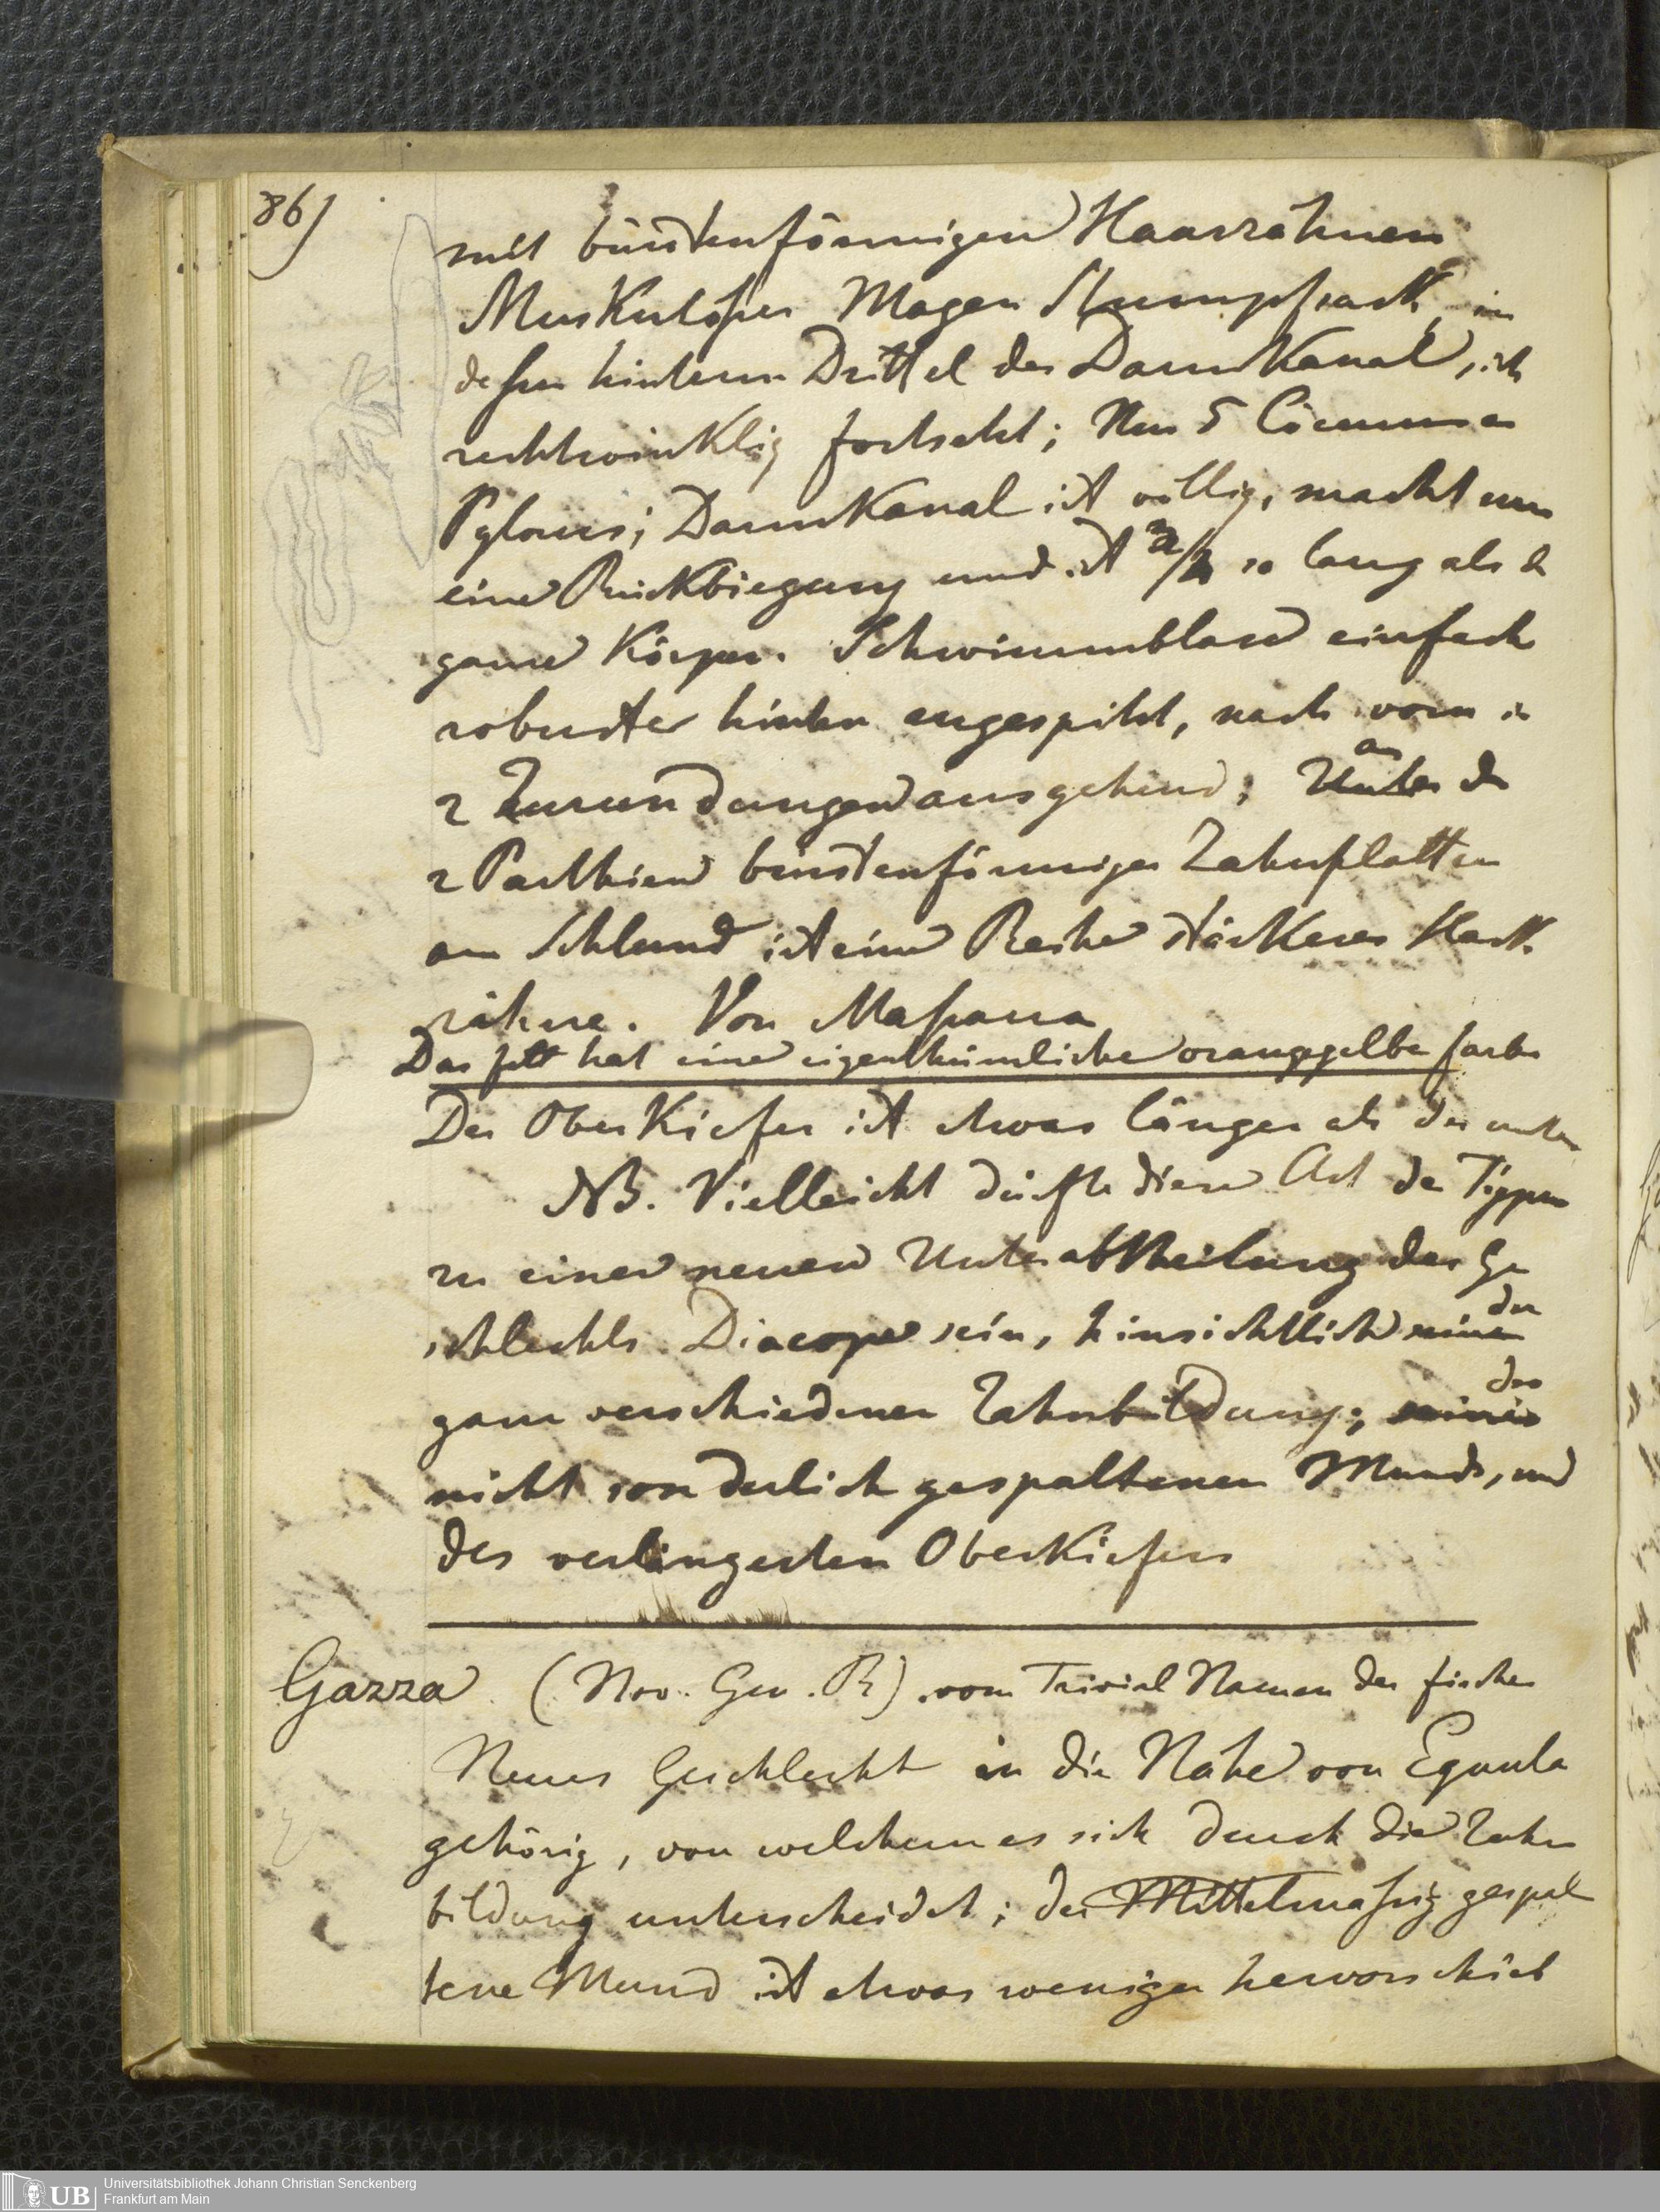 86)
mit bürstenförmigen Haarzähnen
Muskulöser Magen Stumpfsack in
deßen hinterm Drittel der Darmkanal sich
rechtwinklig fortsetzt; Nur 5 Coecum am
Pylorus; Darmkanal ist völlig, macht nur
eine Rückbiegung und ist so lang als der
ganze Körper. Schwimmblase einfach
robuste hinten zugespitzt, nach vorn in
2 Zurundungen ausgehend; an den
2 Parthien bürstenförmiger Zahnplatten
am Schlund ist eine Reihe stärkerer Hack
zähne. Von Massaua
Das Fett hat eine eigenthümliche oranggelbe Farbe
Der Oberkiefer ist etwas länger als der untere
NB. Vielleicht dürfte diese Art der Typus
zu einer neuen Unterabtheilung des Ge
schlechts Diacope sein, hinsichtlich der
ganz verschiedenen Zahnbildung; des
nicht sonderlich gespaltenen Munds, und
des verlängerten Oberkiefers
Gazza (Nov. Gen. R) vom Trivial Namen der Fischer
Neues Geschlecht in die Nähe von Equula
gehörig, von welchem es sich durch die Zahn
bildung unterscheidet; der Mittelmaßig gespal
tene Mund ist etwas weniger hervorschieb
Universitätsbibliothek Johann Christian Senckenberg
Frankfurt am Main
UB